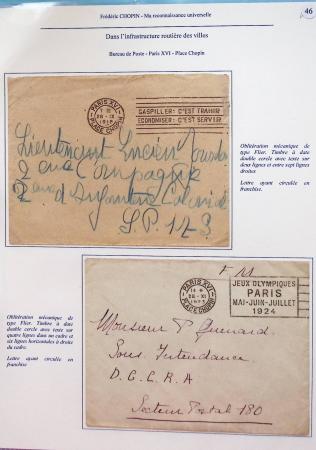 Frédéric CHOPIN - Ma reconnaissance universelle
46
Dans l'infrastructure routière des villes
Bureau de Poste - Paris XVI - Place Chopin
PARIS XVI
28 - IX
1918
PLACE CHOPIN
GASPILLER: C'EST TRAHIR
ECONOMISER: C'EST SERVIR
Lieutenant Lucien
2 eme Compagnie
d'Infanterie Coloniale
S.P. 173
Oblitération mécanique de
type Flier. Timbre à date
double cercle avec texte sur
deux lignes et entre sept lignes
droites
Lettre ayant circulée en
franchise
Oblitération mécanique de
type Flier. Timbre à date
double cercle avec texte sur
quatre lignes dans un cadre et
six lignes horizontales à droite
du cadre.
Lettre ayant circulée en
franchise
F. M
PARIS XVI
XI
PLACE CHOPIN
JEUX OLYMPIQUES
PARIS
MAI-JUIN-JUILLET
1924
Monsieur P.
Sous Intendance
D. G. C. R. A
Secteur Postal 180